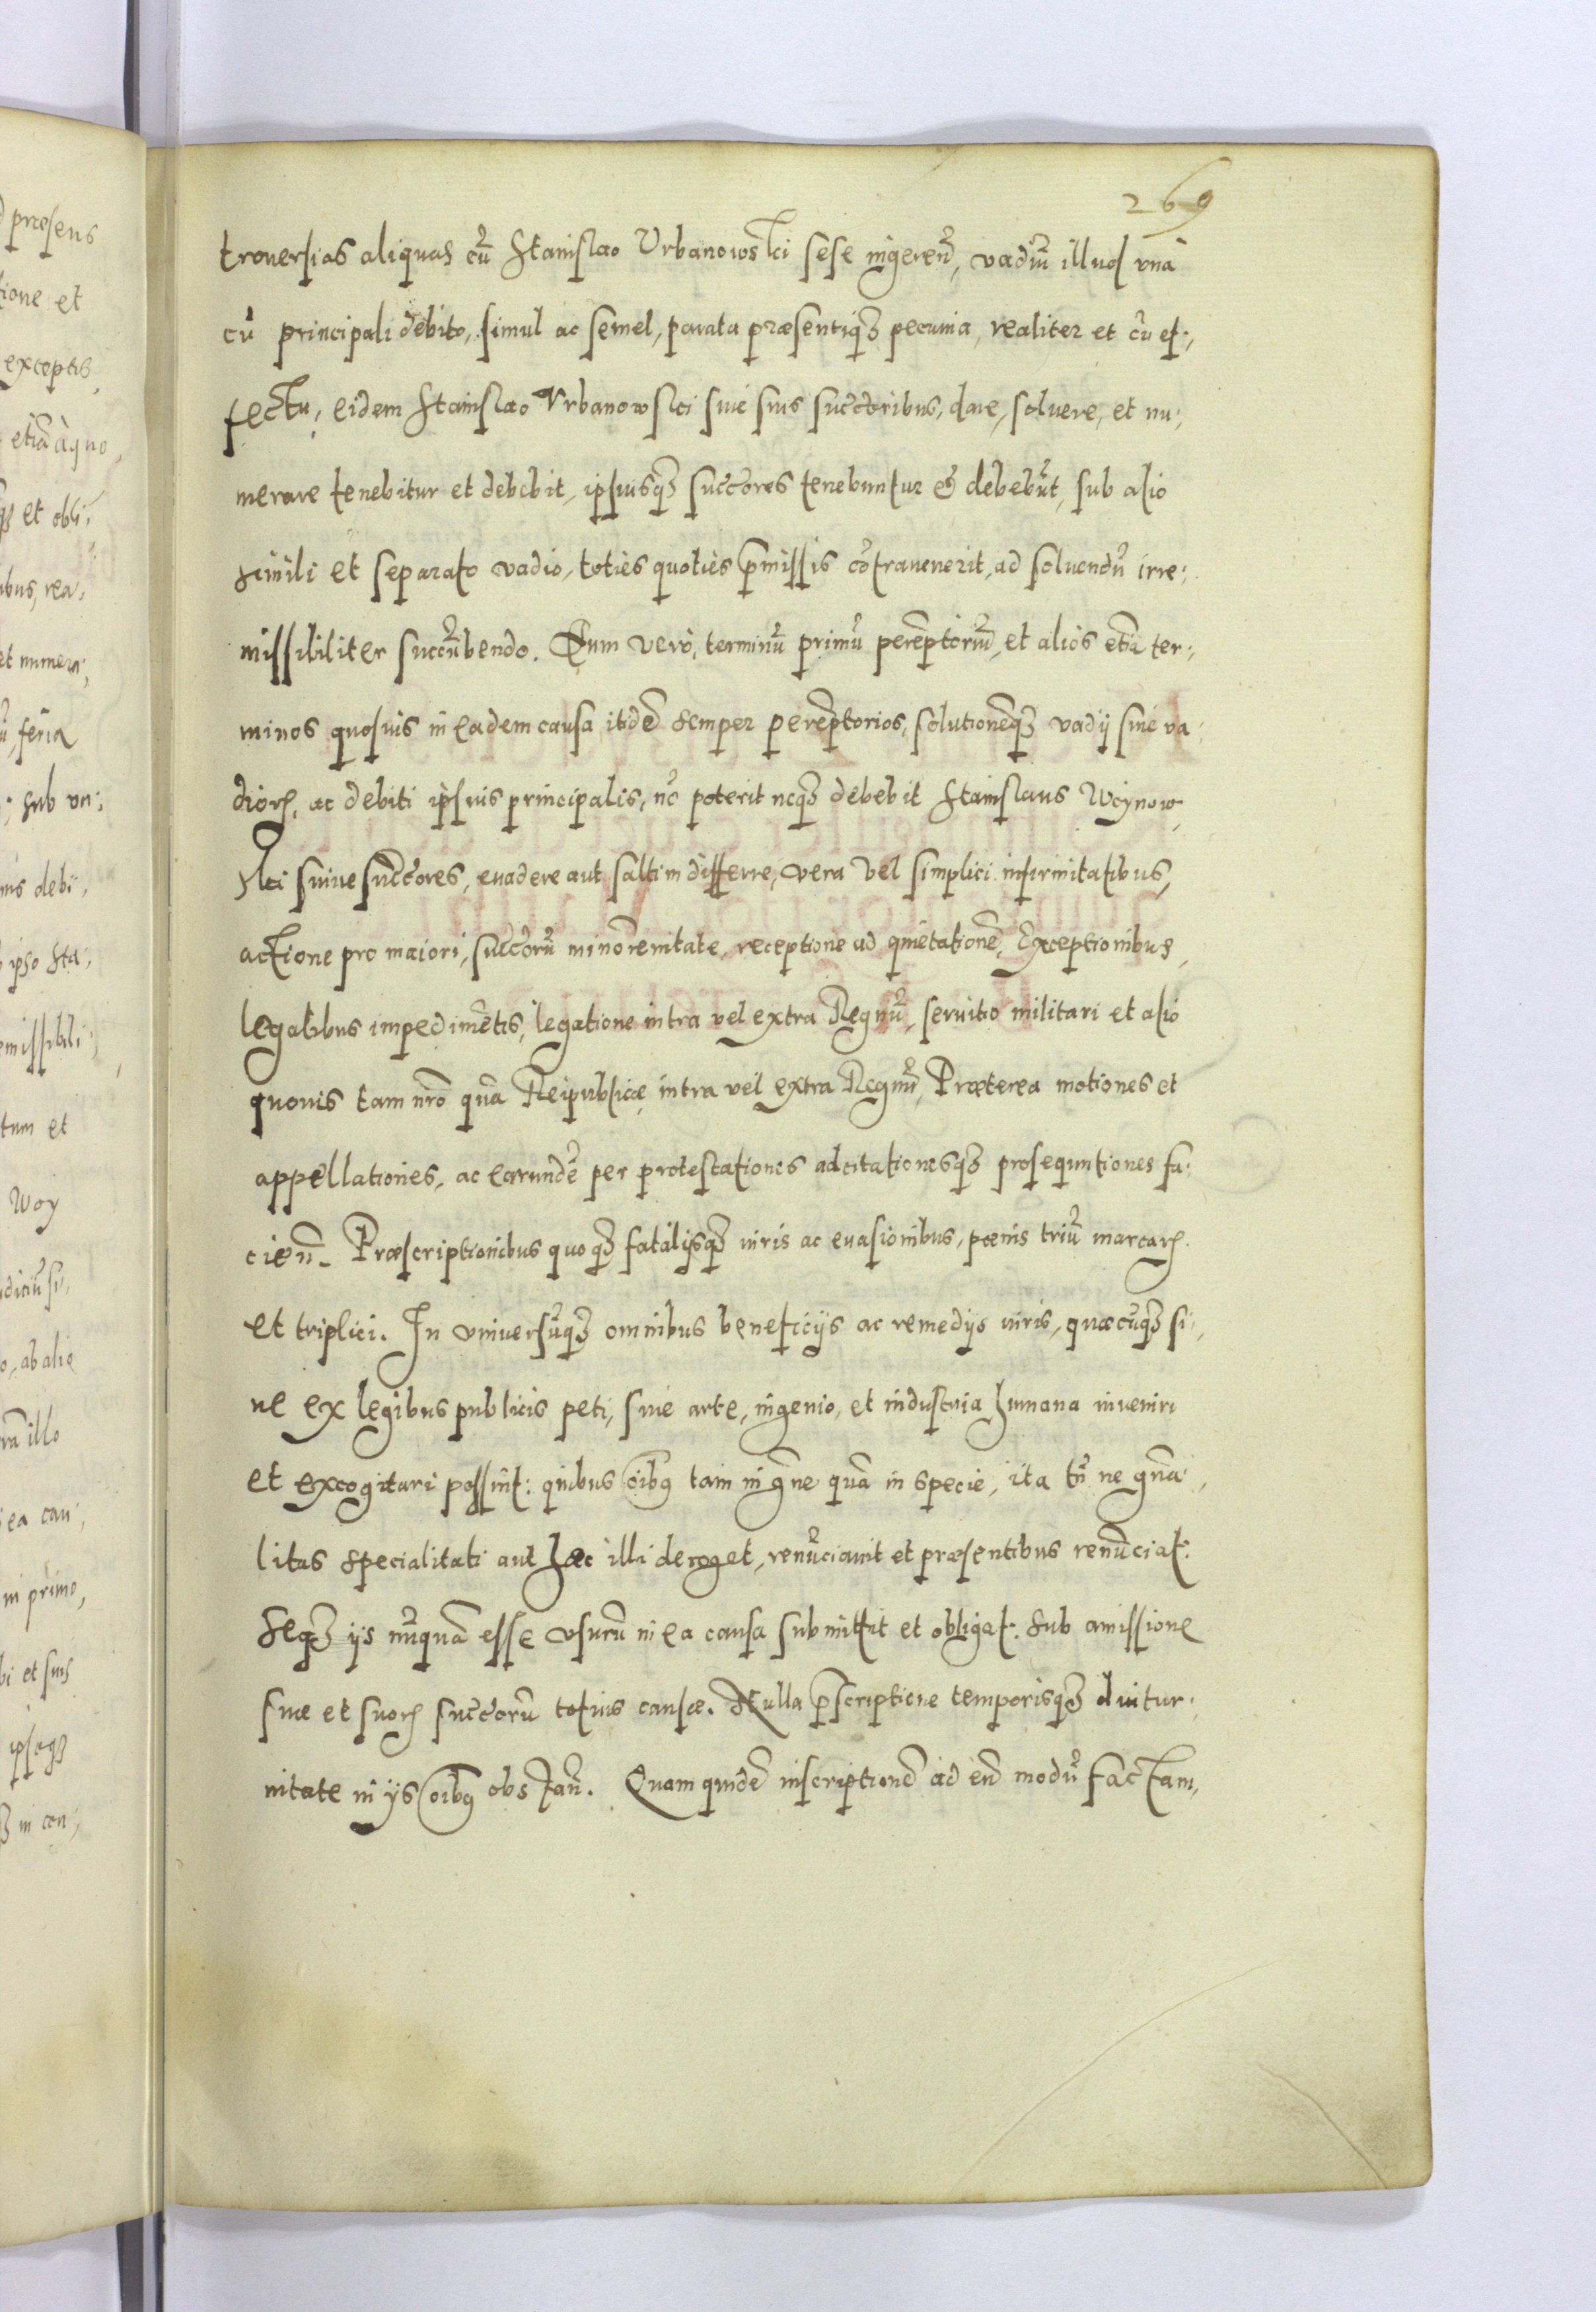 269
trouersias aliquas cũ Stanislao Vrbanowski sese ingereñ, vadiũ illud vnà
cũ principali debito, simul ac semel, parata præsentiq3 pecunia, realiter et cũ ef:,
fectu, eidem Stanislao Vrbanowski siue suis succ̃oribus, dare, soluere, et nu:,
merare tenebitur et debebit, ipsiusq3 succ̃ores tenebuntur et debebũt, sub alio
simili et separato vadio, toties quoties p̃missis cõtrauenerit, ad soluendũ irre:,
missibiliter succũbendo. Quem verò, terminũ primũ perẽptoriũ, et alios etiã ter:,
minos quosuis in eadem causa itidẽ semper perẽptorios, solutionẽq3 vadij siue va,
dior, ac debiti ipsius principalis, nõ poterit neq3 debebit Stanislaus Woynow,
ski suiue succ̃ores, euadere aut saltim differre, vera vel simplici infirmitatibus,
actione pro maiori, succ̃orũ minorẽnitate, receptione ad quietationẽ, Exceptionibus,
legalibus impedimẽtis, legatione intra vel extra Regnũ, seruitio militari et alio
quouis tam nr̃o quã Reipublicæ intra vel extra Regnũ, Præterea motiones et
appellationes, ac earundẽ per protestationes adcitationesq3 prosequutiones fa:
cieñ. Præscriptionibus quoq3 fatalijsq3 iuris ac euasionibus, pœnis triũ marcar
et triplici. In vniuersũq3 omnibus beneficijs ac remedijs iuris, quæcũq3 si:,
ue ex legibus publicis peti, siue arte, ingenio, et industria humana inueniri
et excogitari possint: quibus oĩbus tam in g̃ne quã in specie, ita tñ ne gñra:,
litas specialitati aut hæc illi deroget, renũciauit et præsentibus renũciat.
Seq3 ijs nũquã esse vsurũ in ea causa submittit et obligat. Sub amissione
suæ et suor succ̃orũ totius causæ. Nulla p̃scriptione temporisq3 diutur:
nitate in ijs oĩbus obstañ. Quam quidẽ inscriptionẽ ad eũ modũ factam,